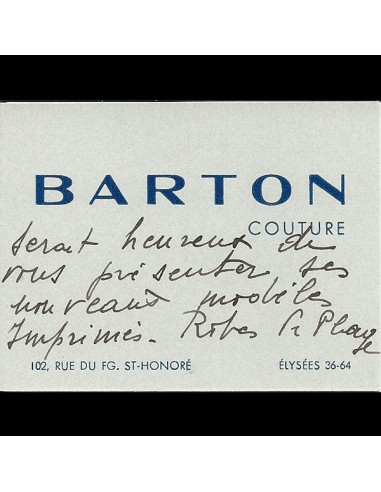 BARTON
COUTURE
Serait heureux de
vous présenter ses
nouveaux modèles
Imprimés. Robes Plage
102, RUE DU FG. ST-HONORÉ
ÉLYSÉES 36-64